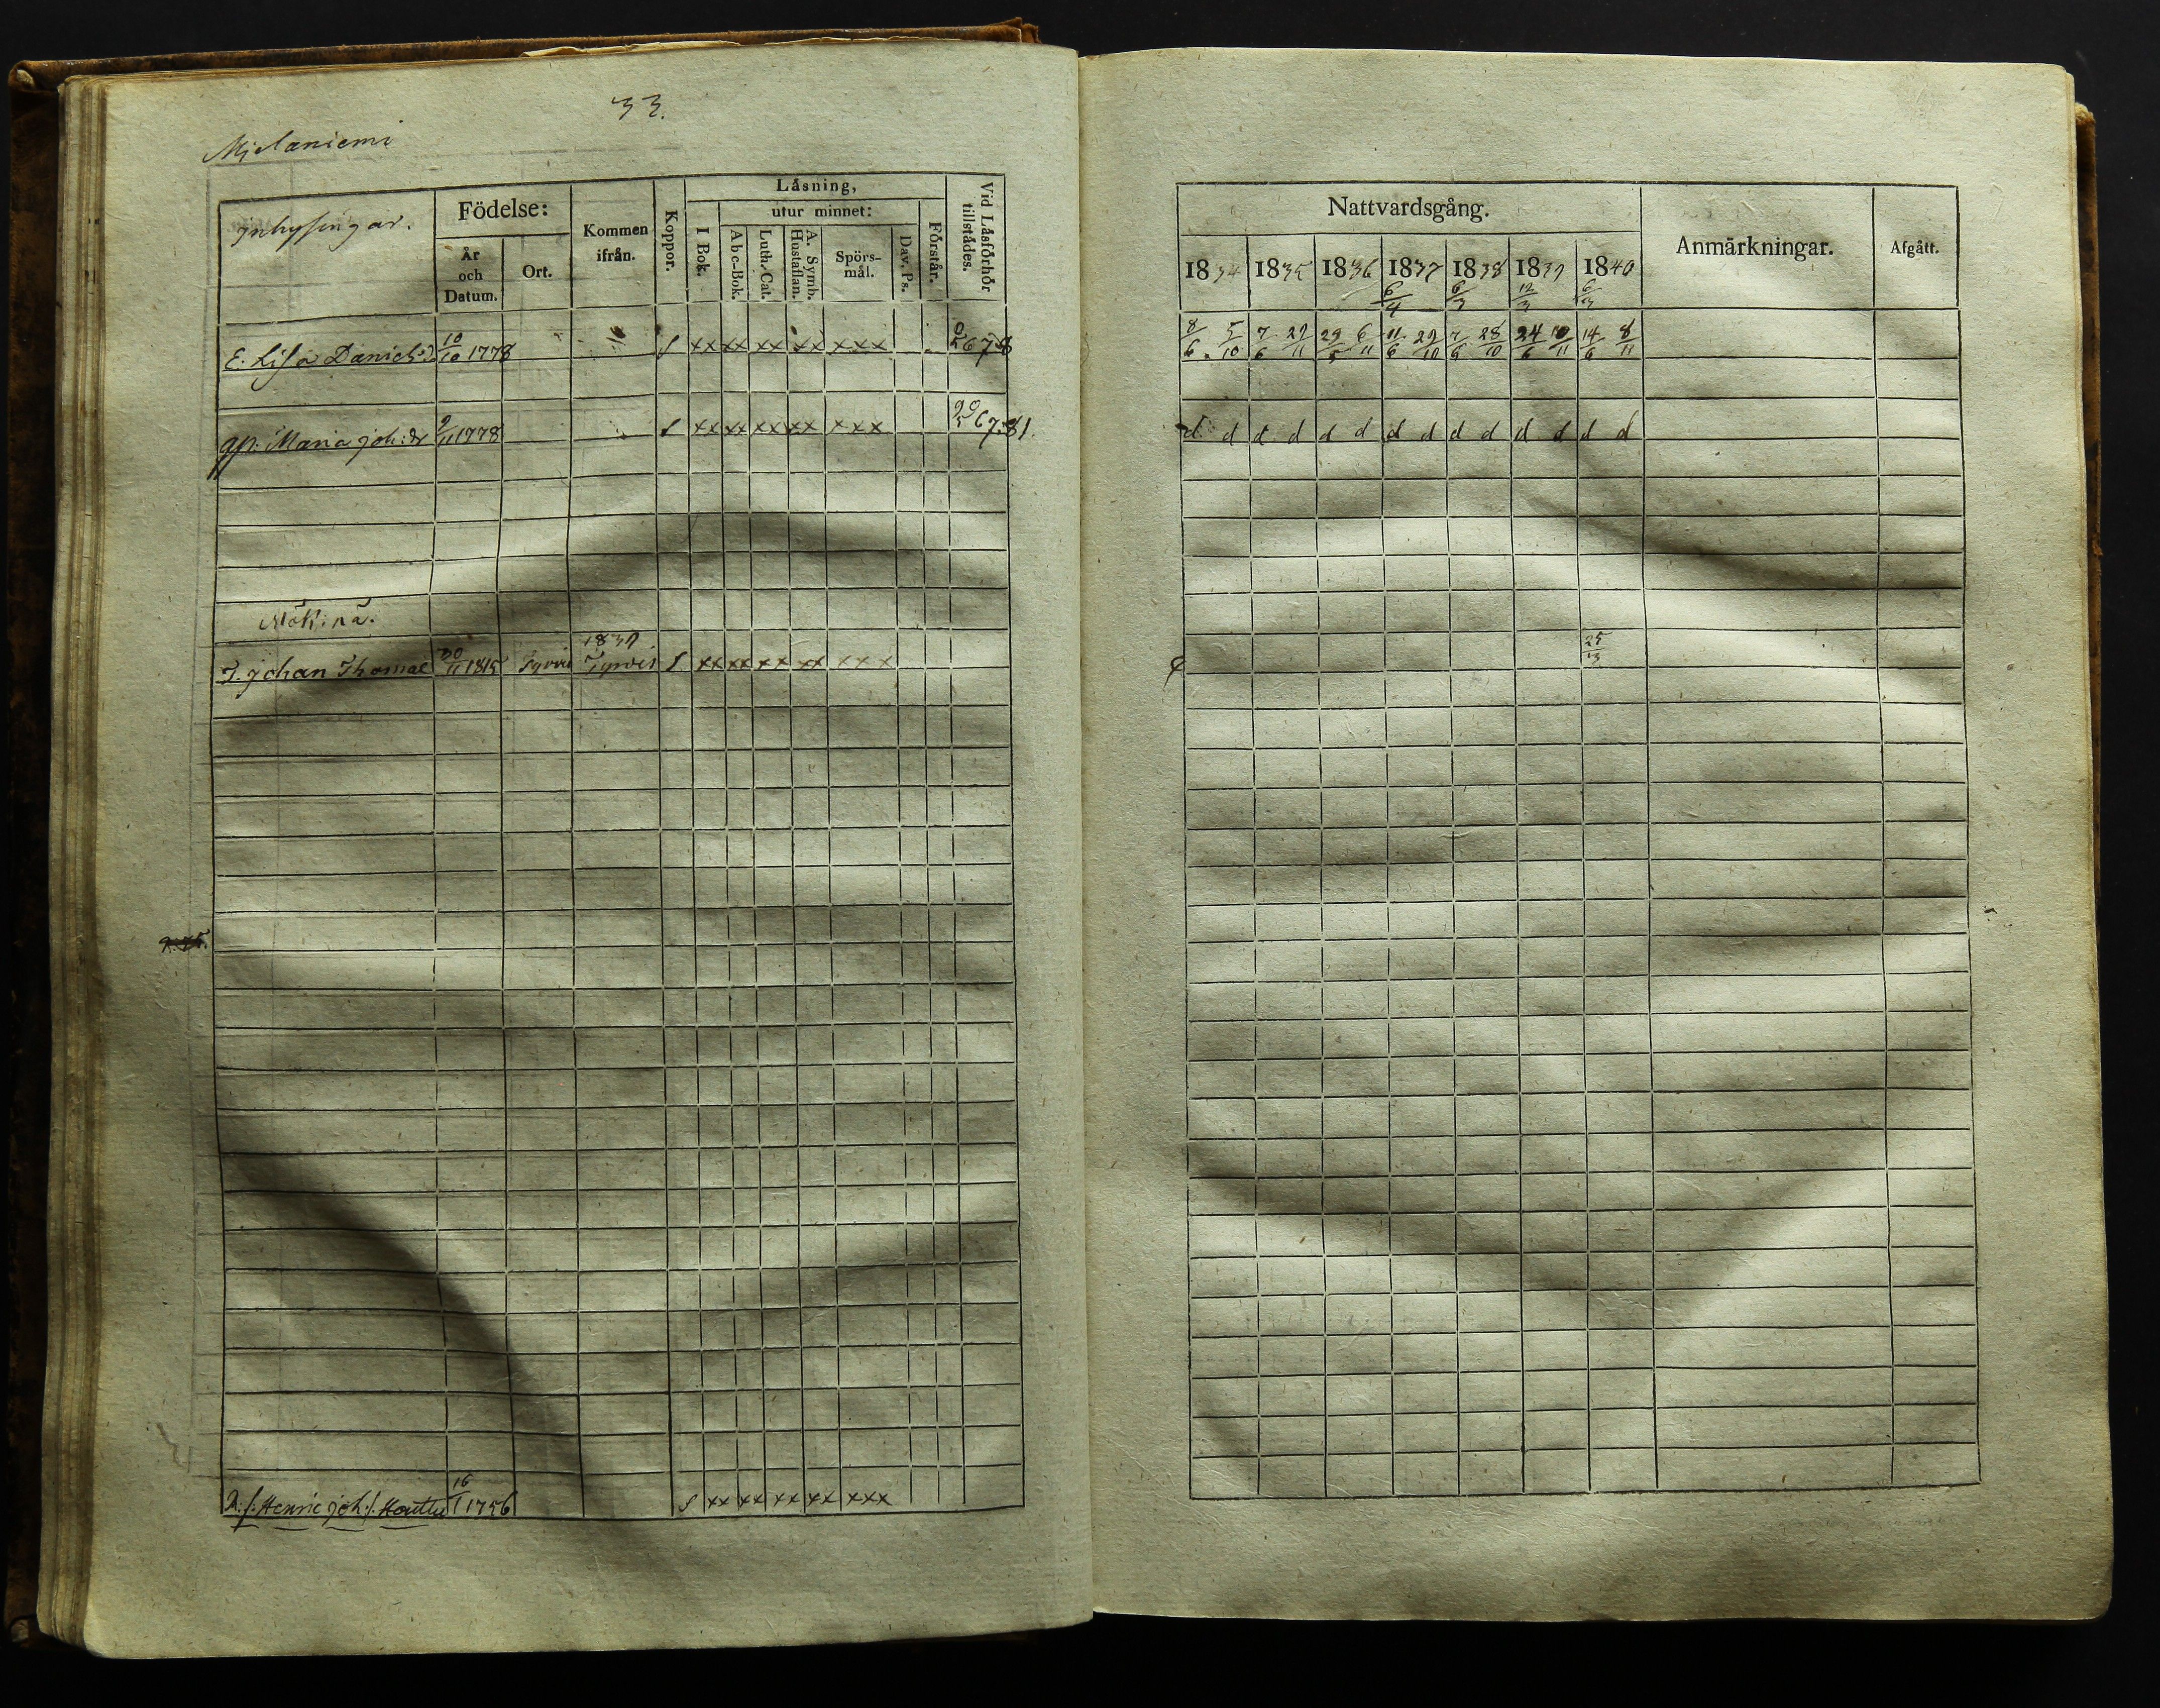 33.
Mjelaniemi
Inhysingar.
Födelse:
År och Datum.
Ort.
Kommen ifrån.
Koppor.
Låsning,
I Bok.
utur minnet:
Abc-Bok.
Luth. Cat.
A. Symb. Hustaflan.
Spörsmål.
Dav. Ps.
Förstår.
Vid Låsförhör tillstådes.
E. Lisa Danielsd 10/10 1778 s xx xx xx xx xxx 678
gp: Maria Joh:dr 9/11 1778 s xx xx xx xx xxx 67.81.
Mökinä.
1839
J. Johan Thomae 30/11 1815 Tyrvis Tyrvis s xx xx xx xx xxx
Henric Joh:s. 16/1 1756 s xx xx xx xx xxx
Nattvardsgång.
Anmärkningar.
Afgått.
1834 1835 1836 1837 1838 1839 1840
6/4 6/3 12/3 6/3
8/6 5/10 7/6 29/11 29/5 6/11 11/6 29/10 7/6 28/10 24/6 10/11 14/6 8/11
d d d d d d d d d d d d d d
25/3